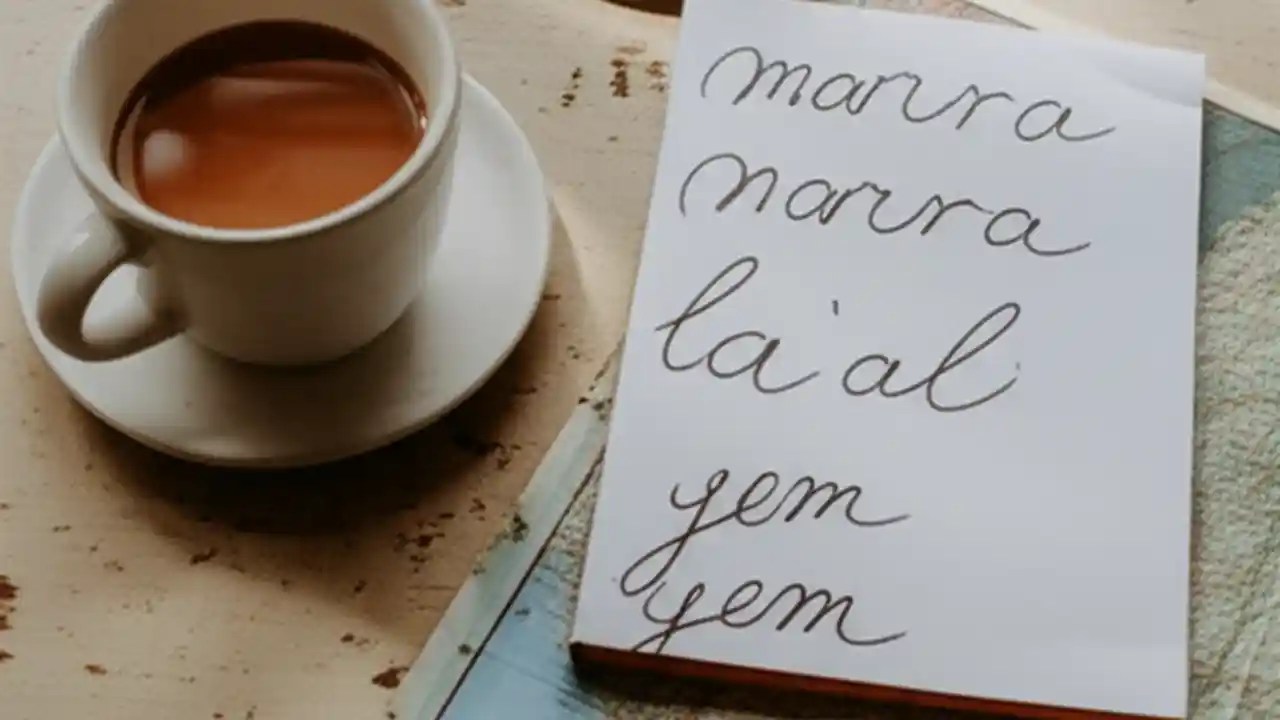 marra
marra
la'al
yem
yem